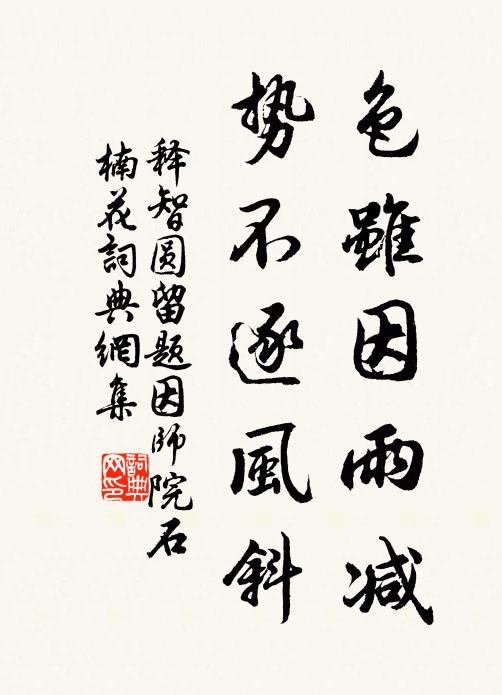 色雖因雨減
勢不逐風斜
释智圓留題因師院石
楠花詞典網集
詞典
网印